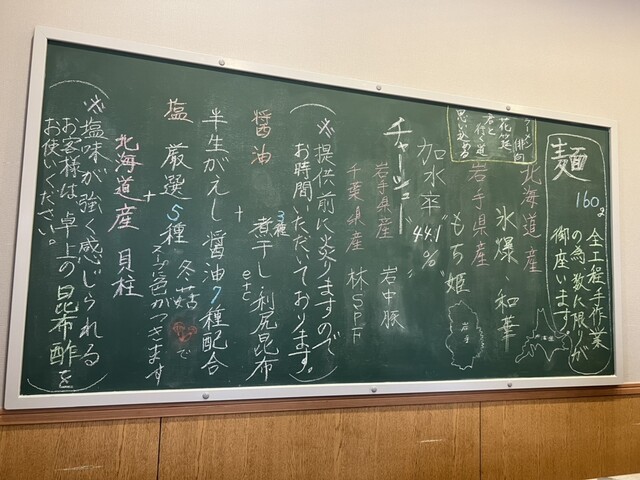 麺
160g
全工程手作業
の為数に限りが
御座います
北海道産
氷爆、和華
岩手県産
もち姫
岩手
加水率
"44.1%"
チャーシュー
岩手県産 岩中豚
千葉県産 林SPF
(※提供前に炙りますので
お時間いただいております。)
醤油 煮干し、利尻昆布
3種
etc
+
半生がえし 醤油7種配合
塩 厳選5種 冬菇で
スープに色がつきます
+
北海道産 貝柱
(※塩味が強く感じられる
お客様は、卓上の昆布酢を
お使いください。)